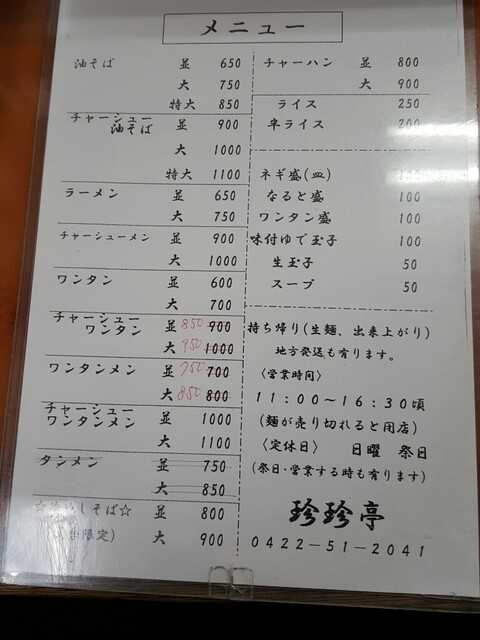 メニュー
油そば 並 650
大 750
特大 850
チャーシュー
油そば 並 900
大 1000
特大 1100
ラーメン 並 650
大 750
チャーシューメン 並 900
大 1000
ワンタン 並 600
大 700
チャーシュー
ワンタン 並 850 900
大 950 1000
ワンタンメン 並 750 700
大 850 800
チャーシュー
ワンタンメン 並 1000
大 1100
タンメン 並 750
大 850
しそば☆ 並 800
限定) 大 900
チャーハン 並 800
大 900
ライス 250
半ライス 200
ネギ盛(皿)
なると盛 100
ワンタン盛 100
味付ゆで玉子 100
生玉子 50
スープ 50
持ち帰り(生麺、出来上がり)
地方発送も有ります。
〈営業時間〉
11:00～16:30頃
(麺が売り切れると閉店)
〈定休日〉 日曜 祭日
(祭日・営業する時も有ります)
珍珍亭
0422－51－2041